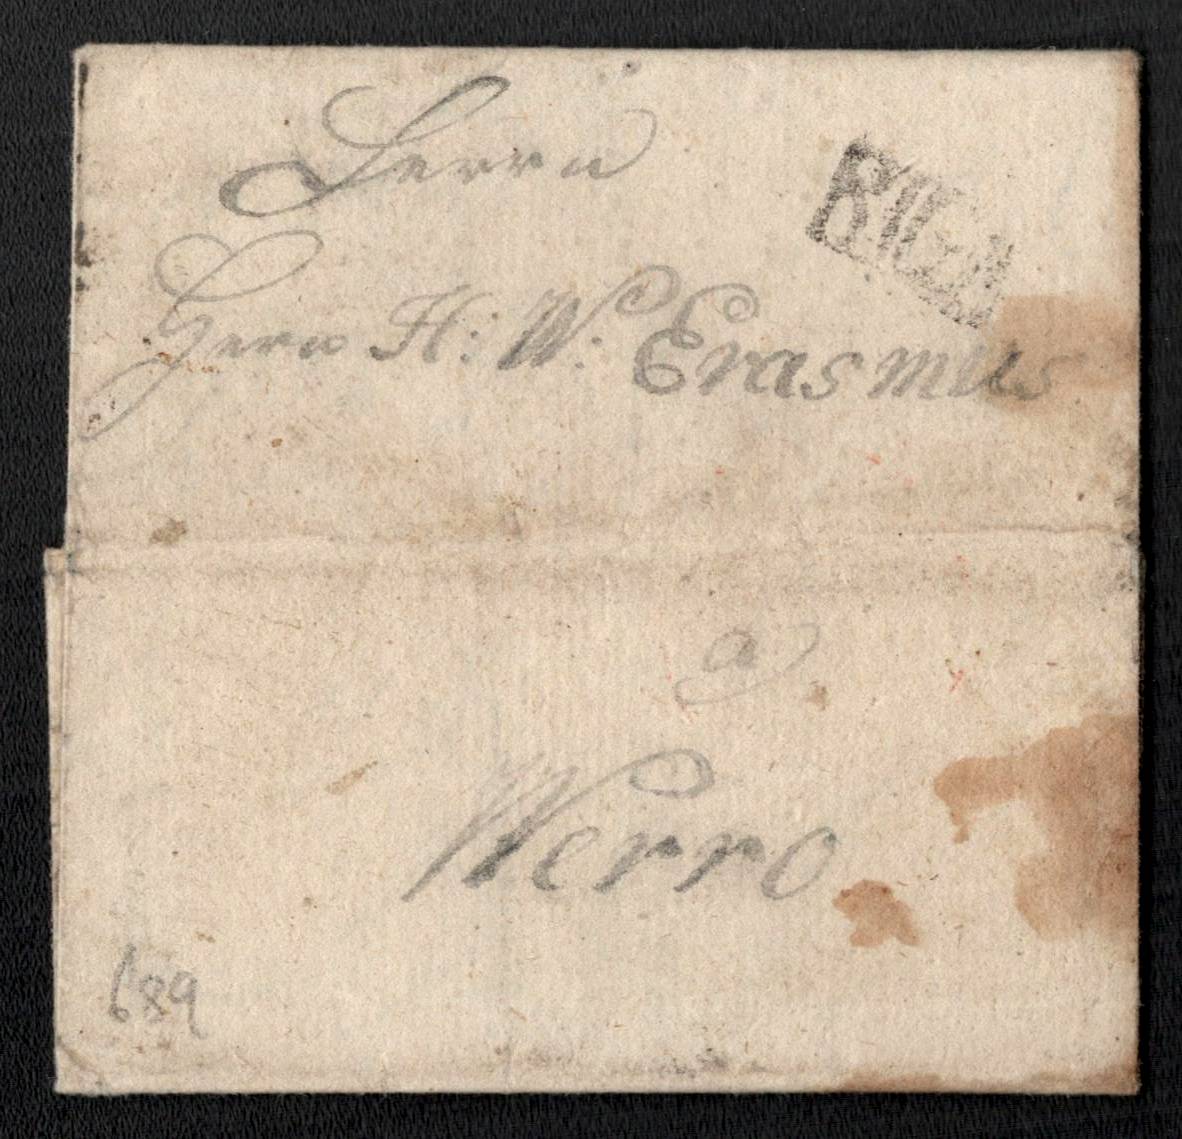 Herrn
RIGA
Herrn H: W: Erasmus
a)
Werro
689